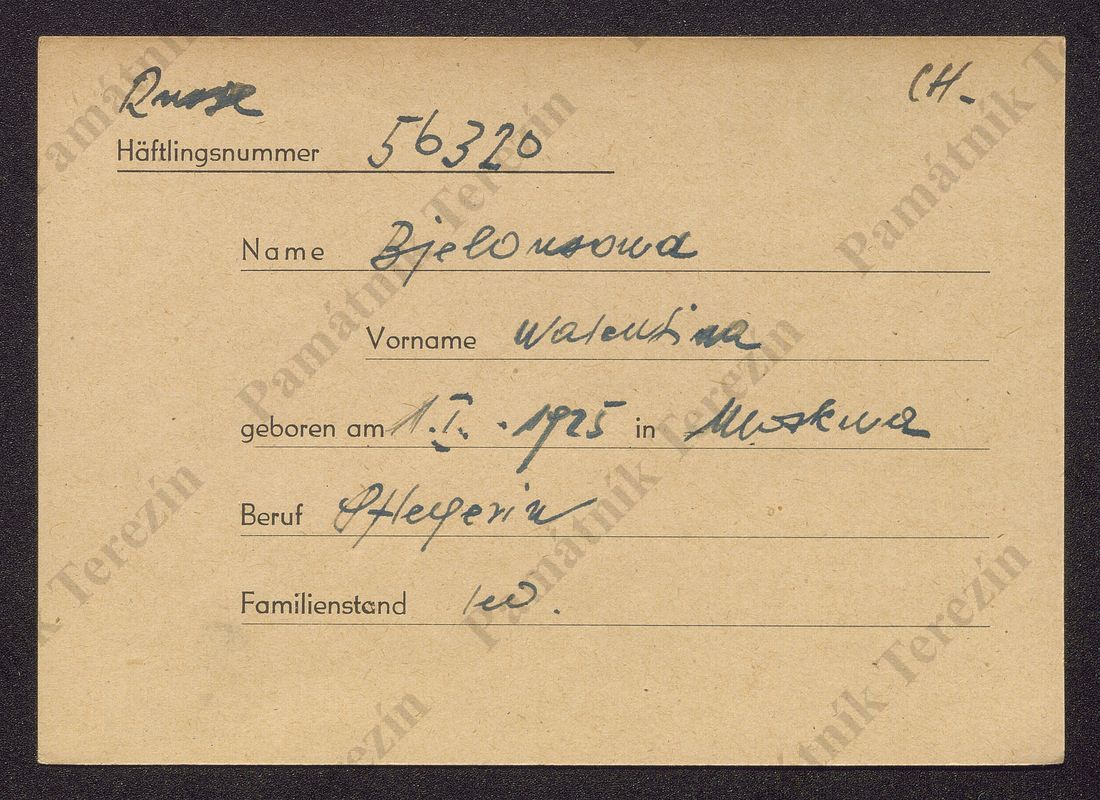 Russe CH-
Häftlingsnummer 56320
Name Bjelousowa
Vorname Walentina
geboren am 1.I. 1925 in Moskwa
Beruf Pflegerin
Familienstand
Památník Terezín